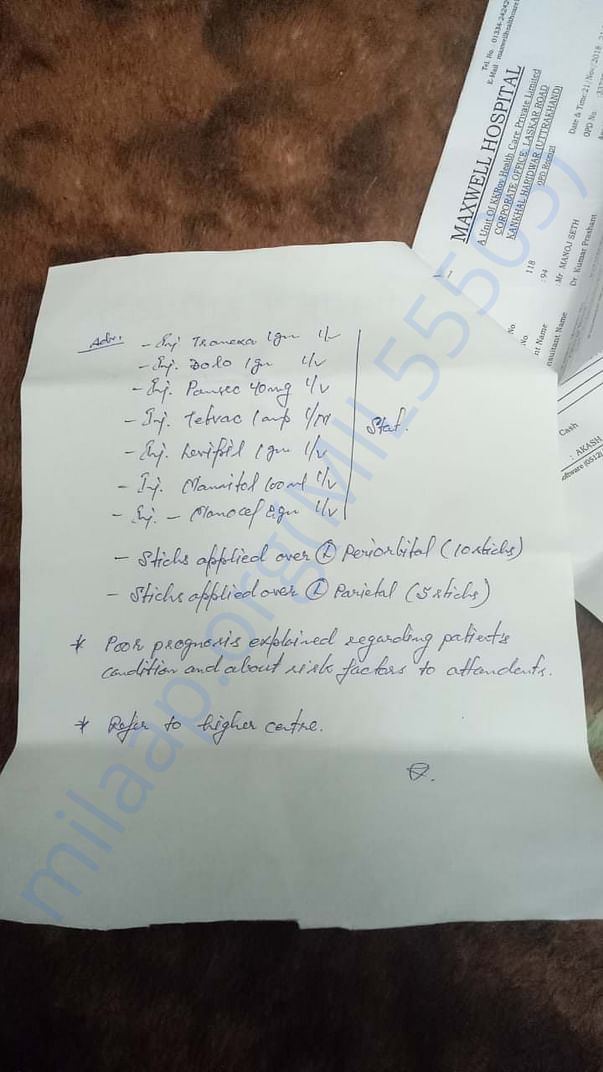 Tel. No. 01334-24242
E-Mail
MAXWELL HOSPITAL
A Unit Of KKRoy Health Care Private Limited
CORPORATE OFFICE: LASKAR ROAD
KANKHAL HARIDWAR (UTTRAKHAND)
OPD Receipt
Date & Time:21/Nov/2018
OPD No.
No. 118
No. :94
nt Name :Mr MANOJ SETH
nsultant Name Dr. Kumar Prashant
Cash
: AKASH
oftware (0512)
Adv.
- Inj Tranexa 1gm I/V
- Inj. Dolo 1gm I/V
- Inj. Pansec 40mg I/V
- Inj. Tetvac 1amp I/M
- Inj. Levipil 1gm I/V
- Inj. Mannitol 100ml I/V
- Inj - Monocef 2gm I/V
Stat.
- Stichs applied over Ⓛ Periorbital (10 stichs)
- Stichs applied over Ⓛ Parietal (5 stichs)
* Poor prognosis explained regarding patients
condition and about risk factors to attendents.
* Refer to higher centre.
milaap.org(MIL55505)